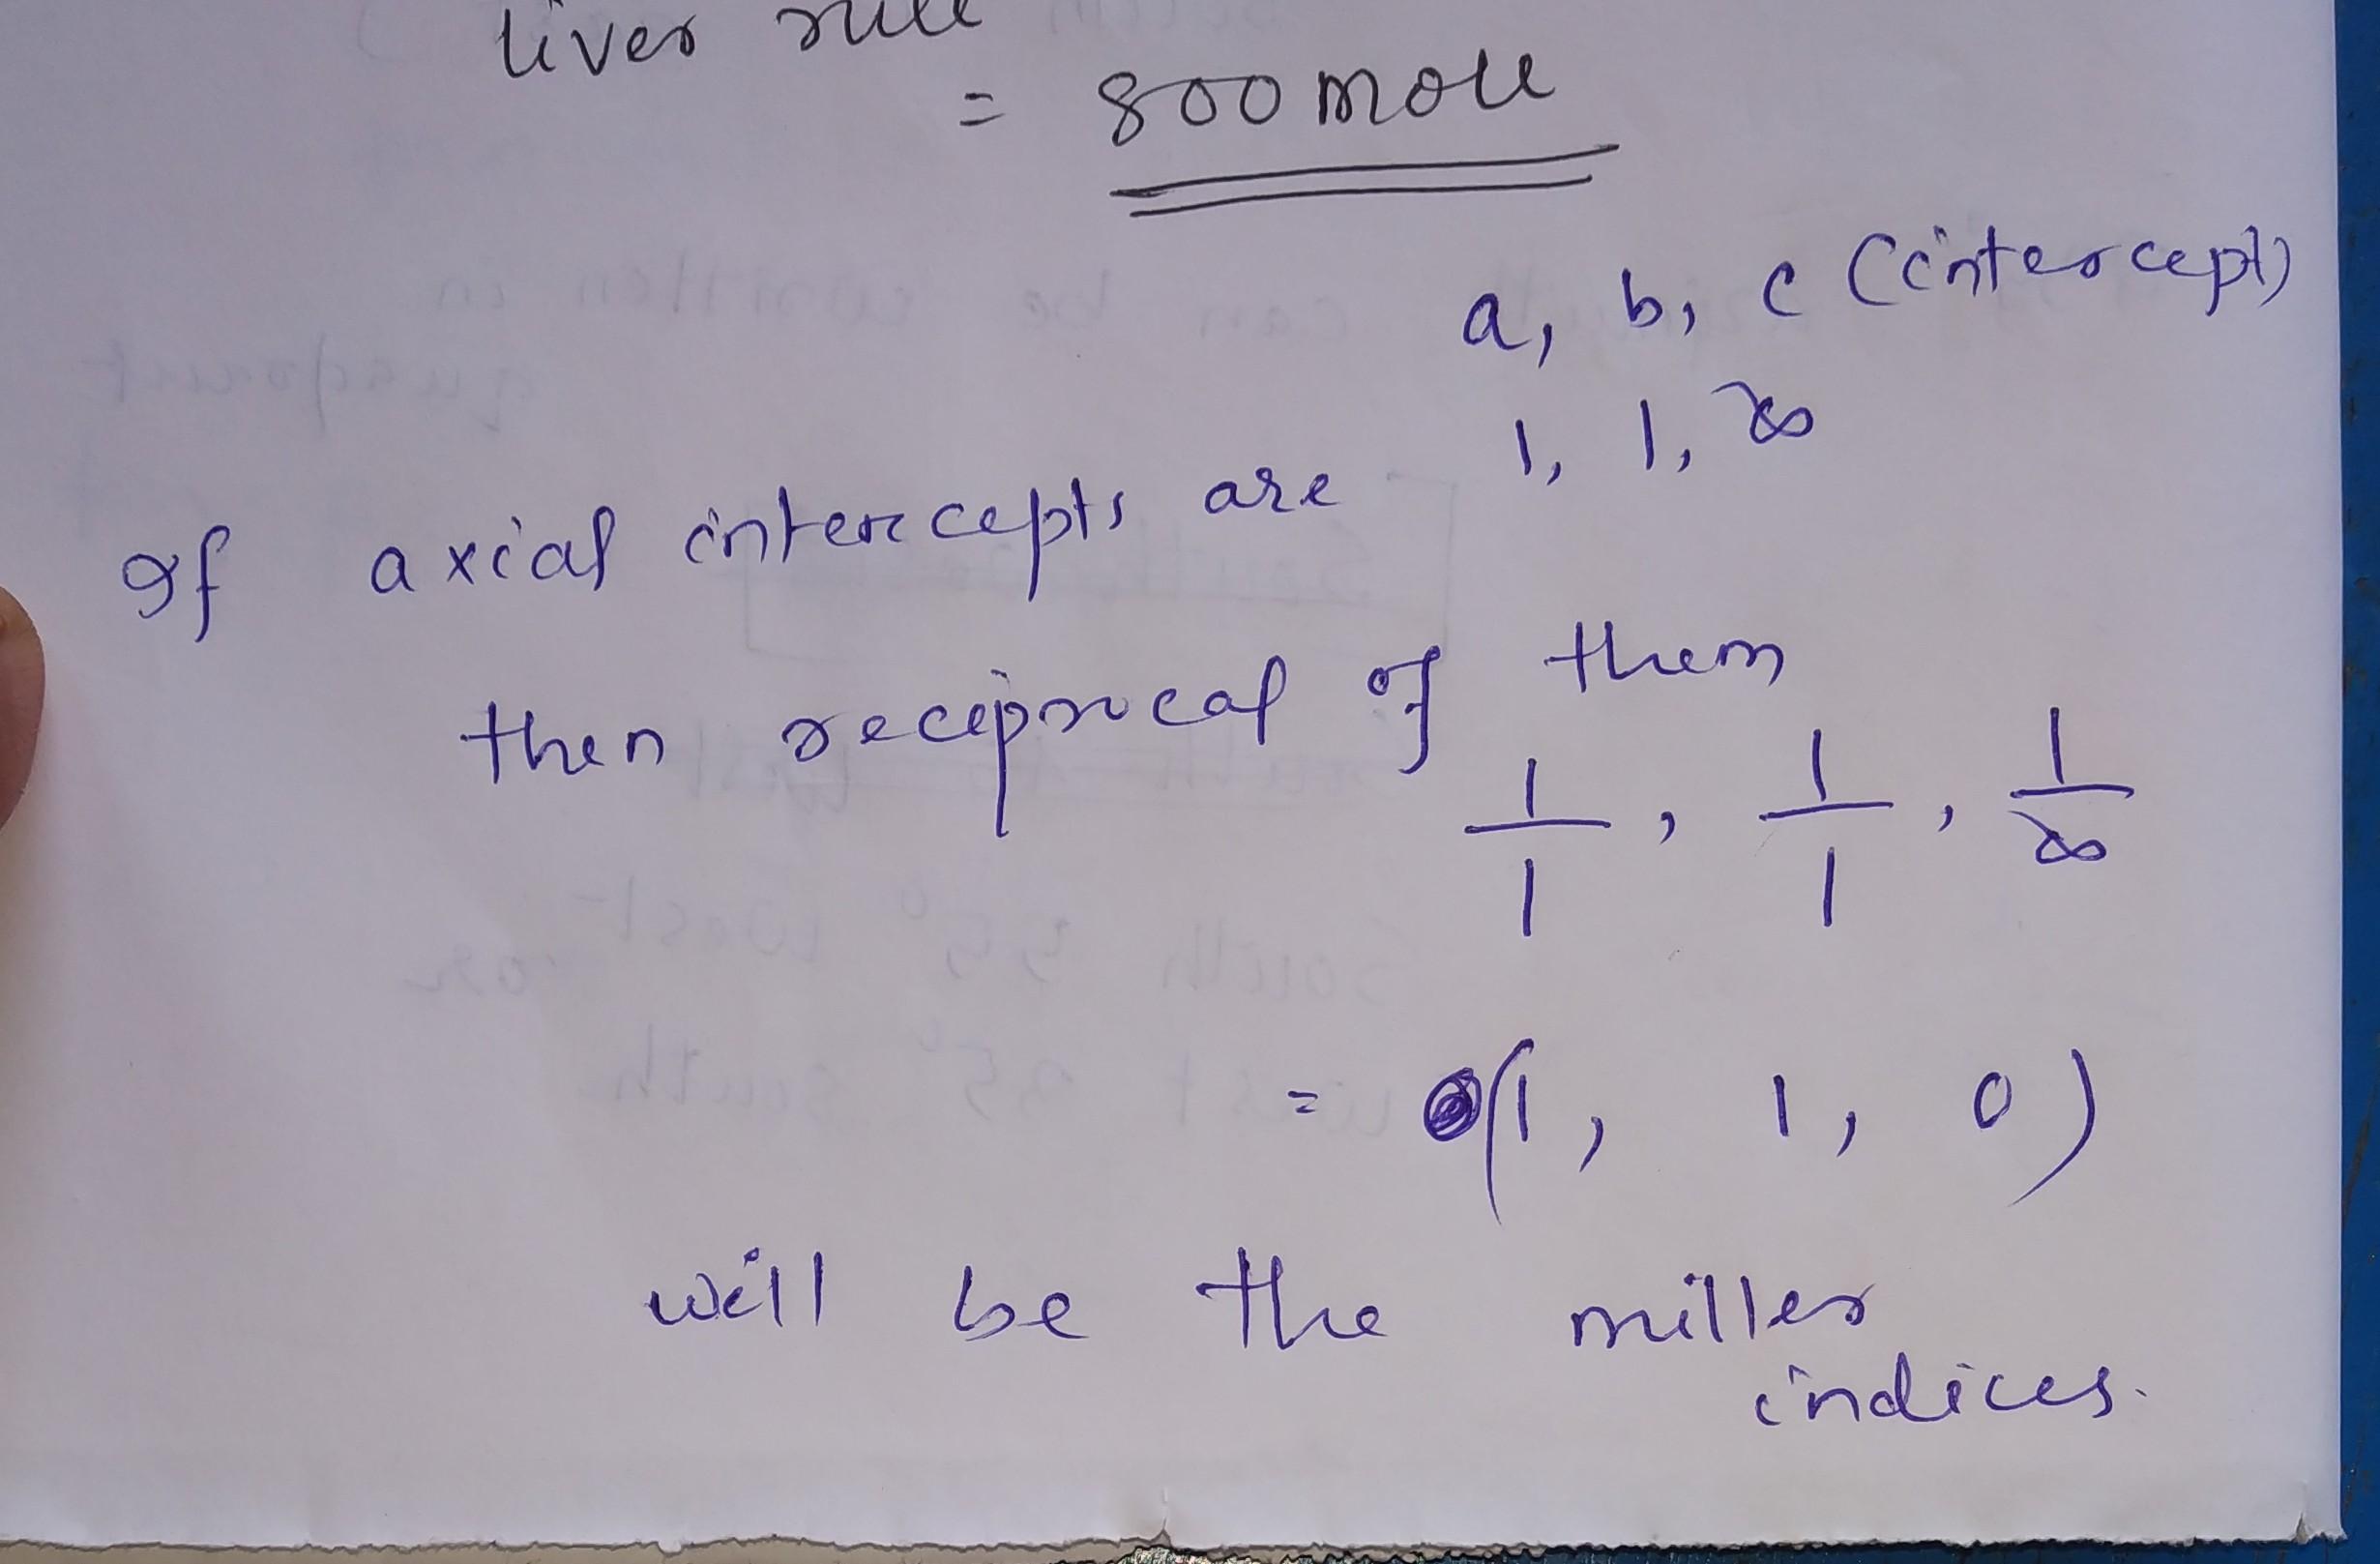 liver rule
= 800 mole
a, b, c (intercept)
1, 1, ∞
If axial intercepts are
then reciprocal of them
1/1, 1/1, 1/∞
= (1, 1, 0)
will be the miller
indices.